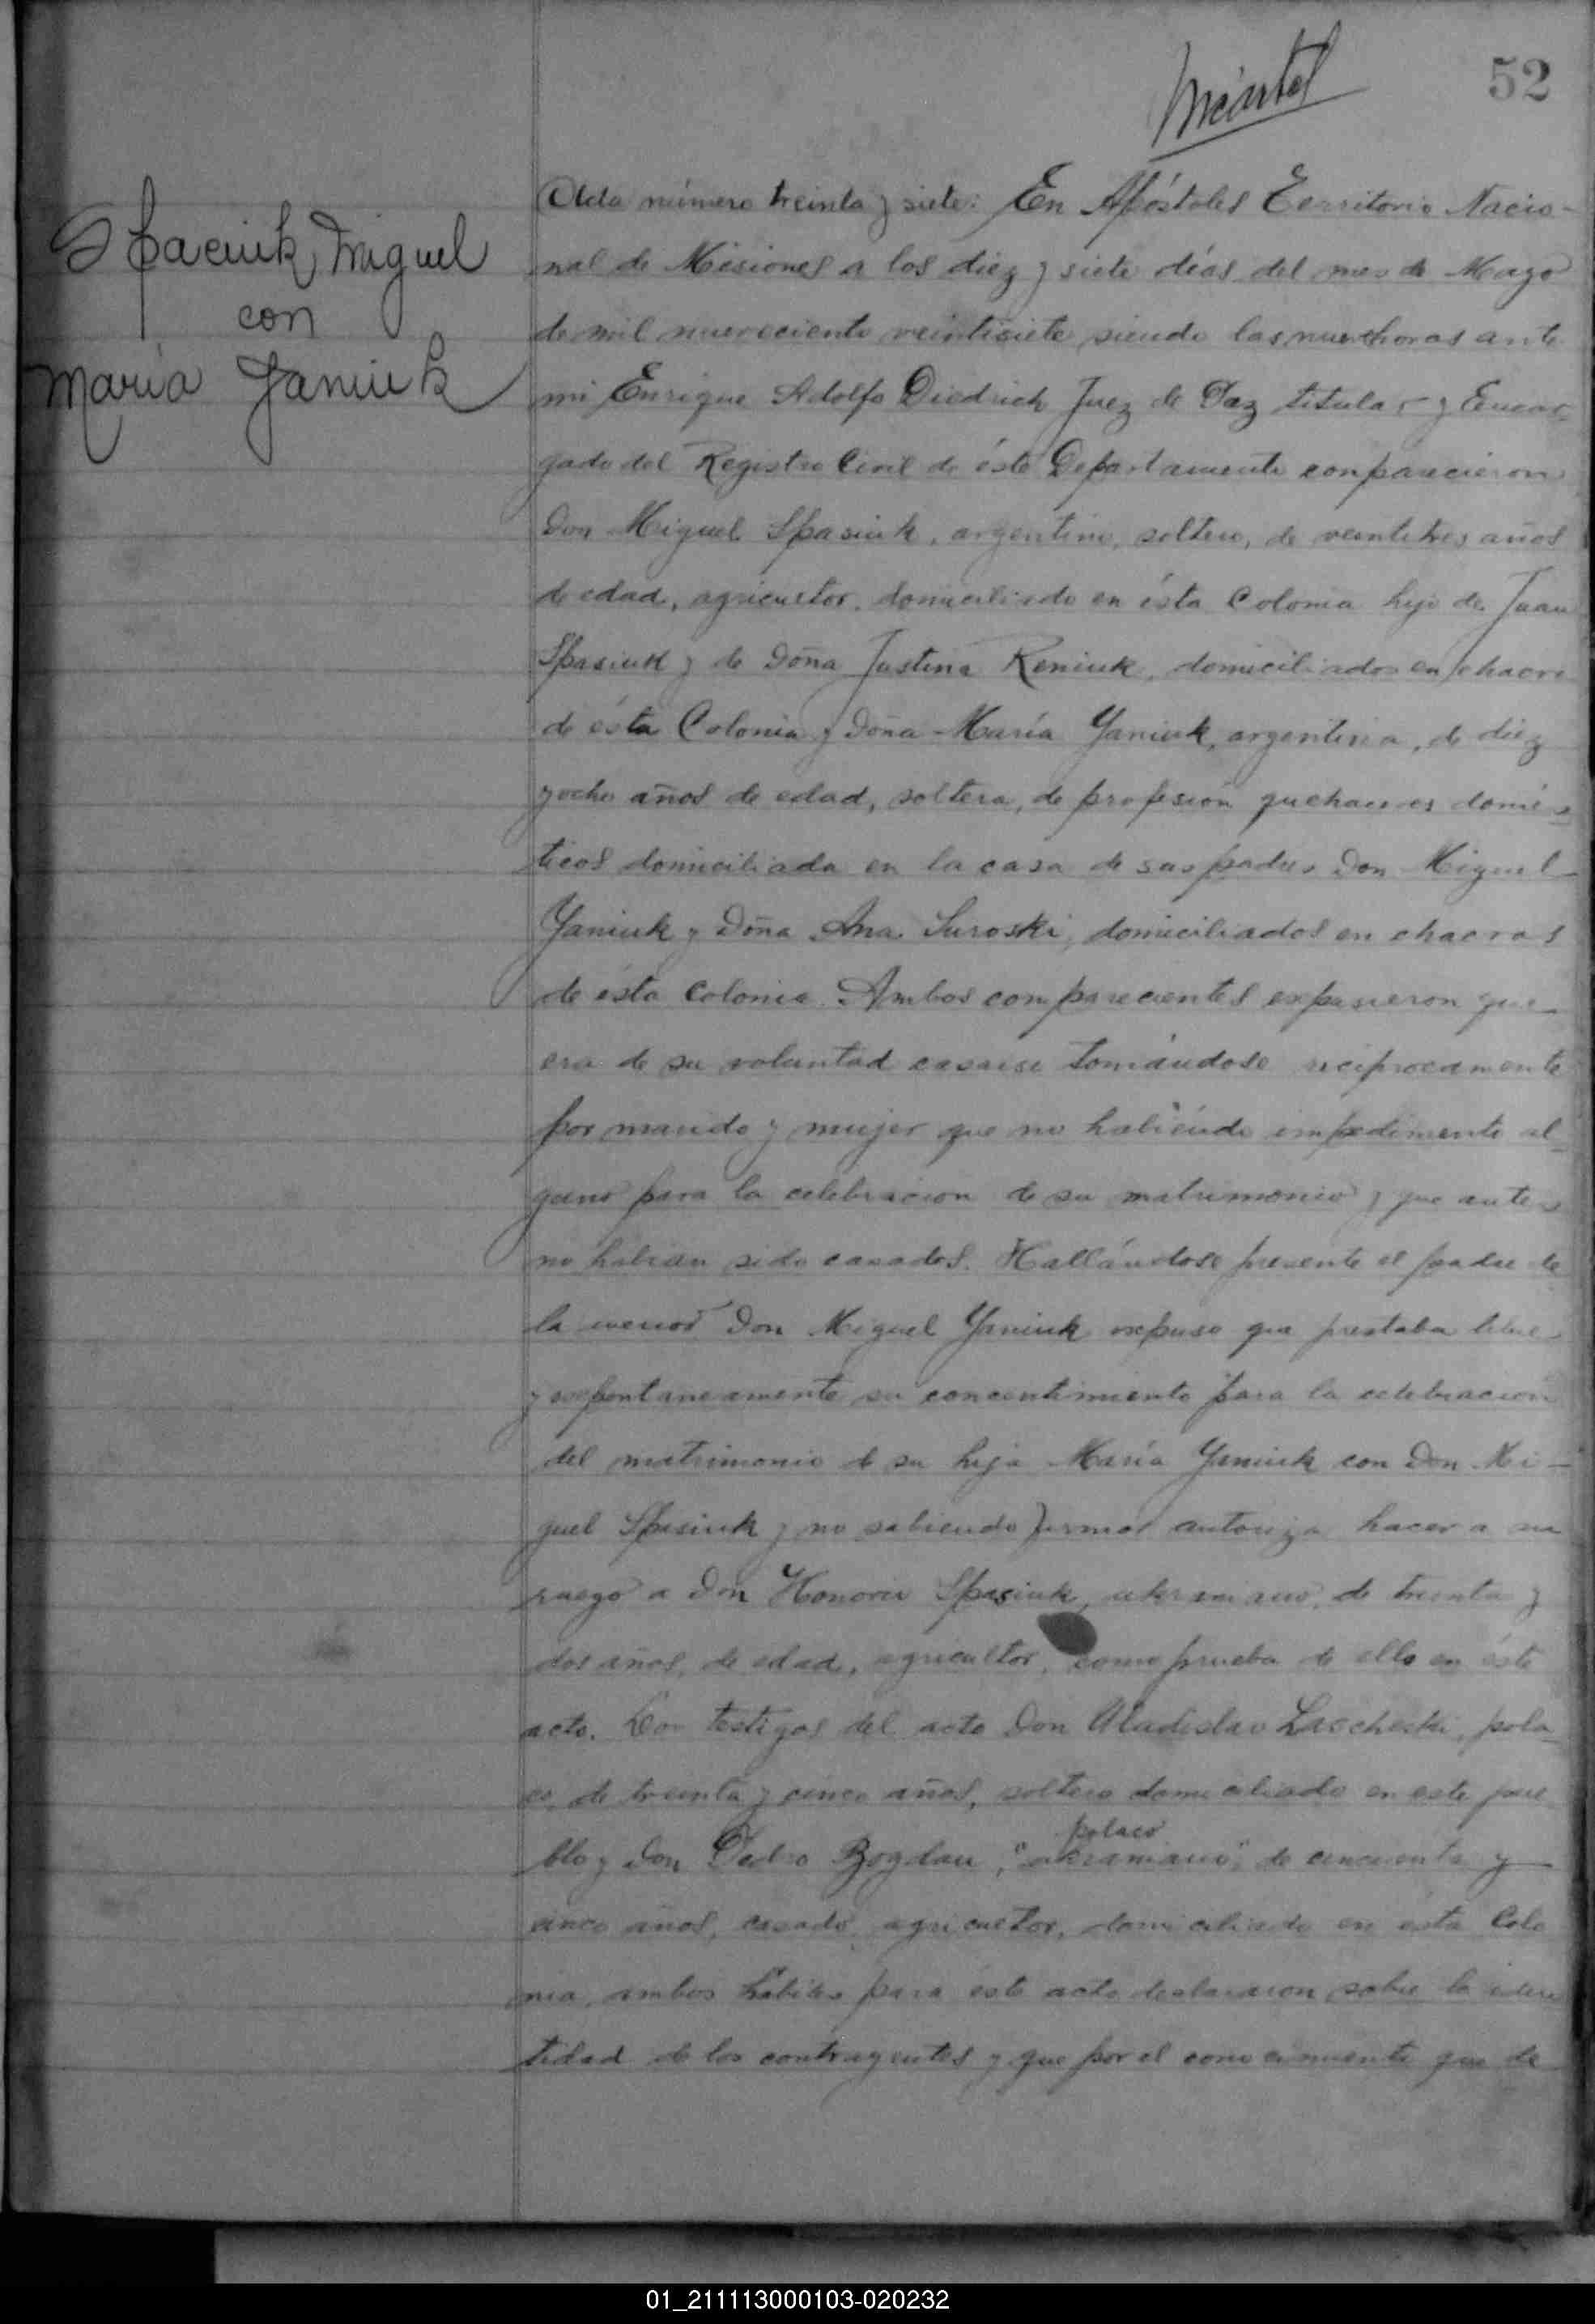 52
Spaciuk, Miguel
con
María Janiuk
Acta número treinta y siete: En Apóstoles Territorio Nacio-
nal de Misiones a los diez y siete días del mes de Mayo
de mil nueveciento veintisiete siendo las nueve horas ante
mi Enrique Adolfo Diedrich Juez de Paz titular y Encar-
gado del Registro Civil de éste Departamento conparecieron
Don Miguel Spasiuk, argentino, soltero, de veintitres años
de edad, agricultor, domiciliado en ésta Colonia hijo de Juan
Spasiuk y de Doña Justina Reniuk, domiciliados en chacra
de ésta Colonia y Doña María Yaniuk, argentina, de diez
y ocho años de edad, soltera, de profesión quehaceres domes-
ticos domiciliada en la casa de sus padres Don Miguel
Yaniuk y Doña Ana Suroski, domiciliados en chacras
de ésta Colonia. Ambos comparecientes expusieron que
era de su voluntad casarse tomándose reciprocamente
por marido y mujer que no habiéndo impedimento al-
guno para la celebracion de su matrimonio y que antes
no habian sido casados. Hallándose presente el padre de
la menor Don Miguel Yaniuk expuso que prestaba libre
y expontaneamente su concentimiento para la celebracion
del matrimonio de su hija María Yaniuk con Don Mi-
guel Spasiuk y no sabiendo firmar autoriza hacer a su
ruego a Don Honorio Spasiuk, ukraniano, de treinta y
dos años, de edad, agricultor, como prueba de ello en éste
acto. Los testigos del acto Don Uladislao Lascheski, pola-
co, de treinta y cinco años, soltero domiciliado en este pue
polaco
blo y Don Pedro Bogdan, "ukraniano", de cincuenta y
cinco años, casado, agricultor, domiciliado en ésta Colo
nia, ambos habiles para éste acto declararon sobre la iden
tidad de los contrayentes y que por el conocimiento que de